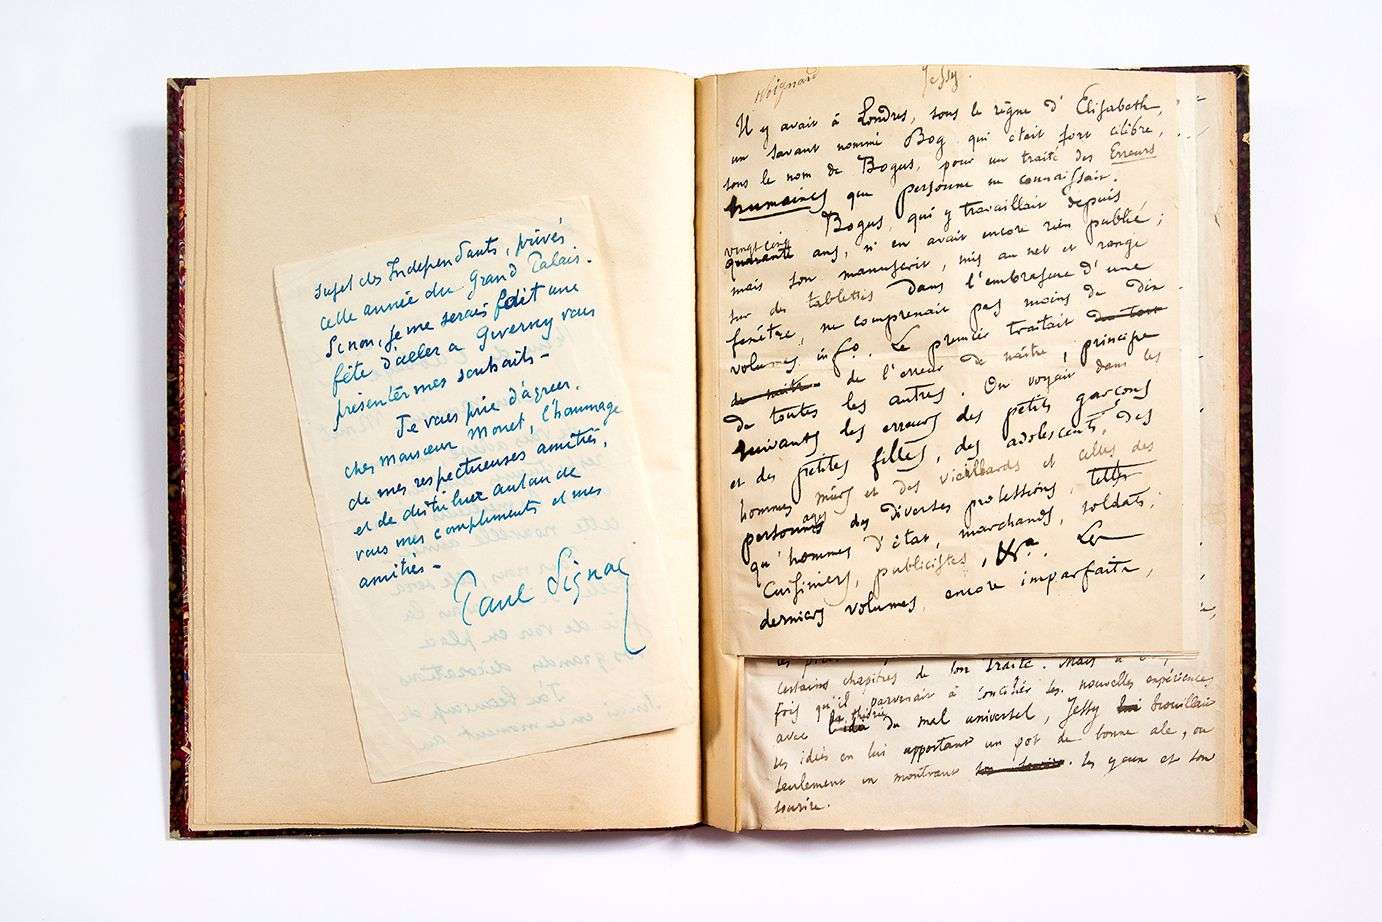 sujet des Indépendants, privés
cette année du Grand Palais.
Sinon, je me serais fait une
fête d'aller à Giverny vous
présenter mes souhaits –
Je vous prie d'agréer,
cher Monsieur Monet, l'hommage
de mes respectueuses amitiés,
et de distribuer autour de
vous mes compliments et mes
amitiés –
Paul Signac
Jessy.
Il y avait à Londres, sous le règne d'Elisabeth,
un savant nommé Bog qui était fort célèbre,
sous le nom de Bogus, pour un traité des Erreurs
humaines que personne ne connaissait.
Bogus, qui y travaillait depuis
vingt cinq
quarante ans, n'en avait encore rien publié ;
mais son manuscrit, mis au net et rangé
sur des tablettes dans l'embrasure d'une
fenêtre, ne comprenait pas moins de dix
volumes in fo. Le premier traitait de tout
de naître de l'erreur de naître, principe
de toutes les autres. On voyait dans les
suivants les erreurs des petits garçons
et des petites filles, des adolescents, des
hommes mûrs et des vieillards et celles des
personnes des diverses professions, telles
qu'hommes d'état, marchands, soldats,
cuisiniers, publicistes, &a. Les
derniers volumes, encore imparfaits,
certains chapitres de son traité. Mais à
fois qu'il parvenait à concilier les nouvelles expériences
avec du mal universel, Jessy lui brouillait
ses idées en lui apportant un pot de bonne ale, ou
seulement en montrant les yeux et son
sourire.